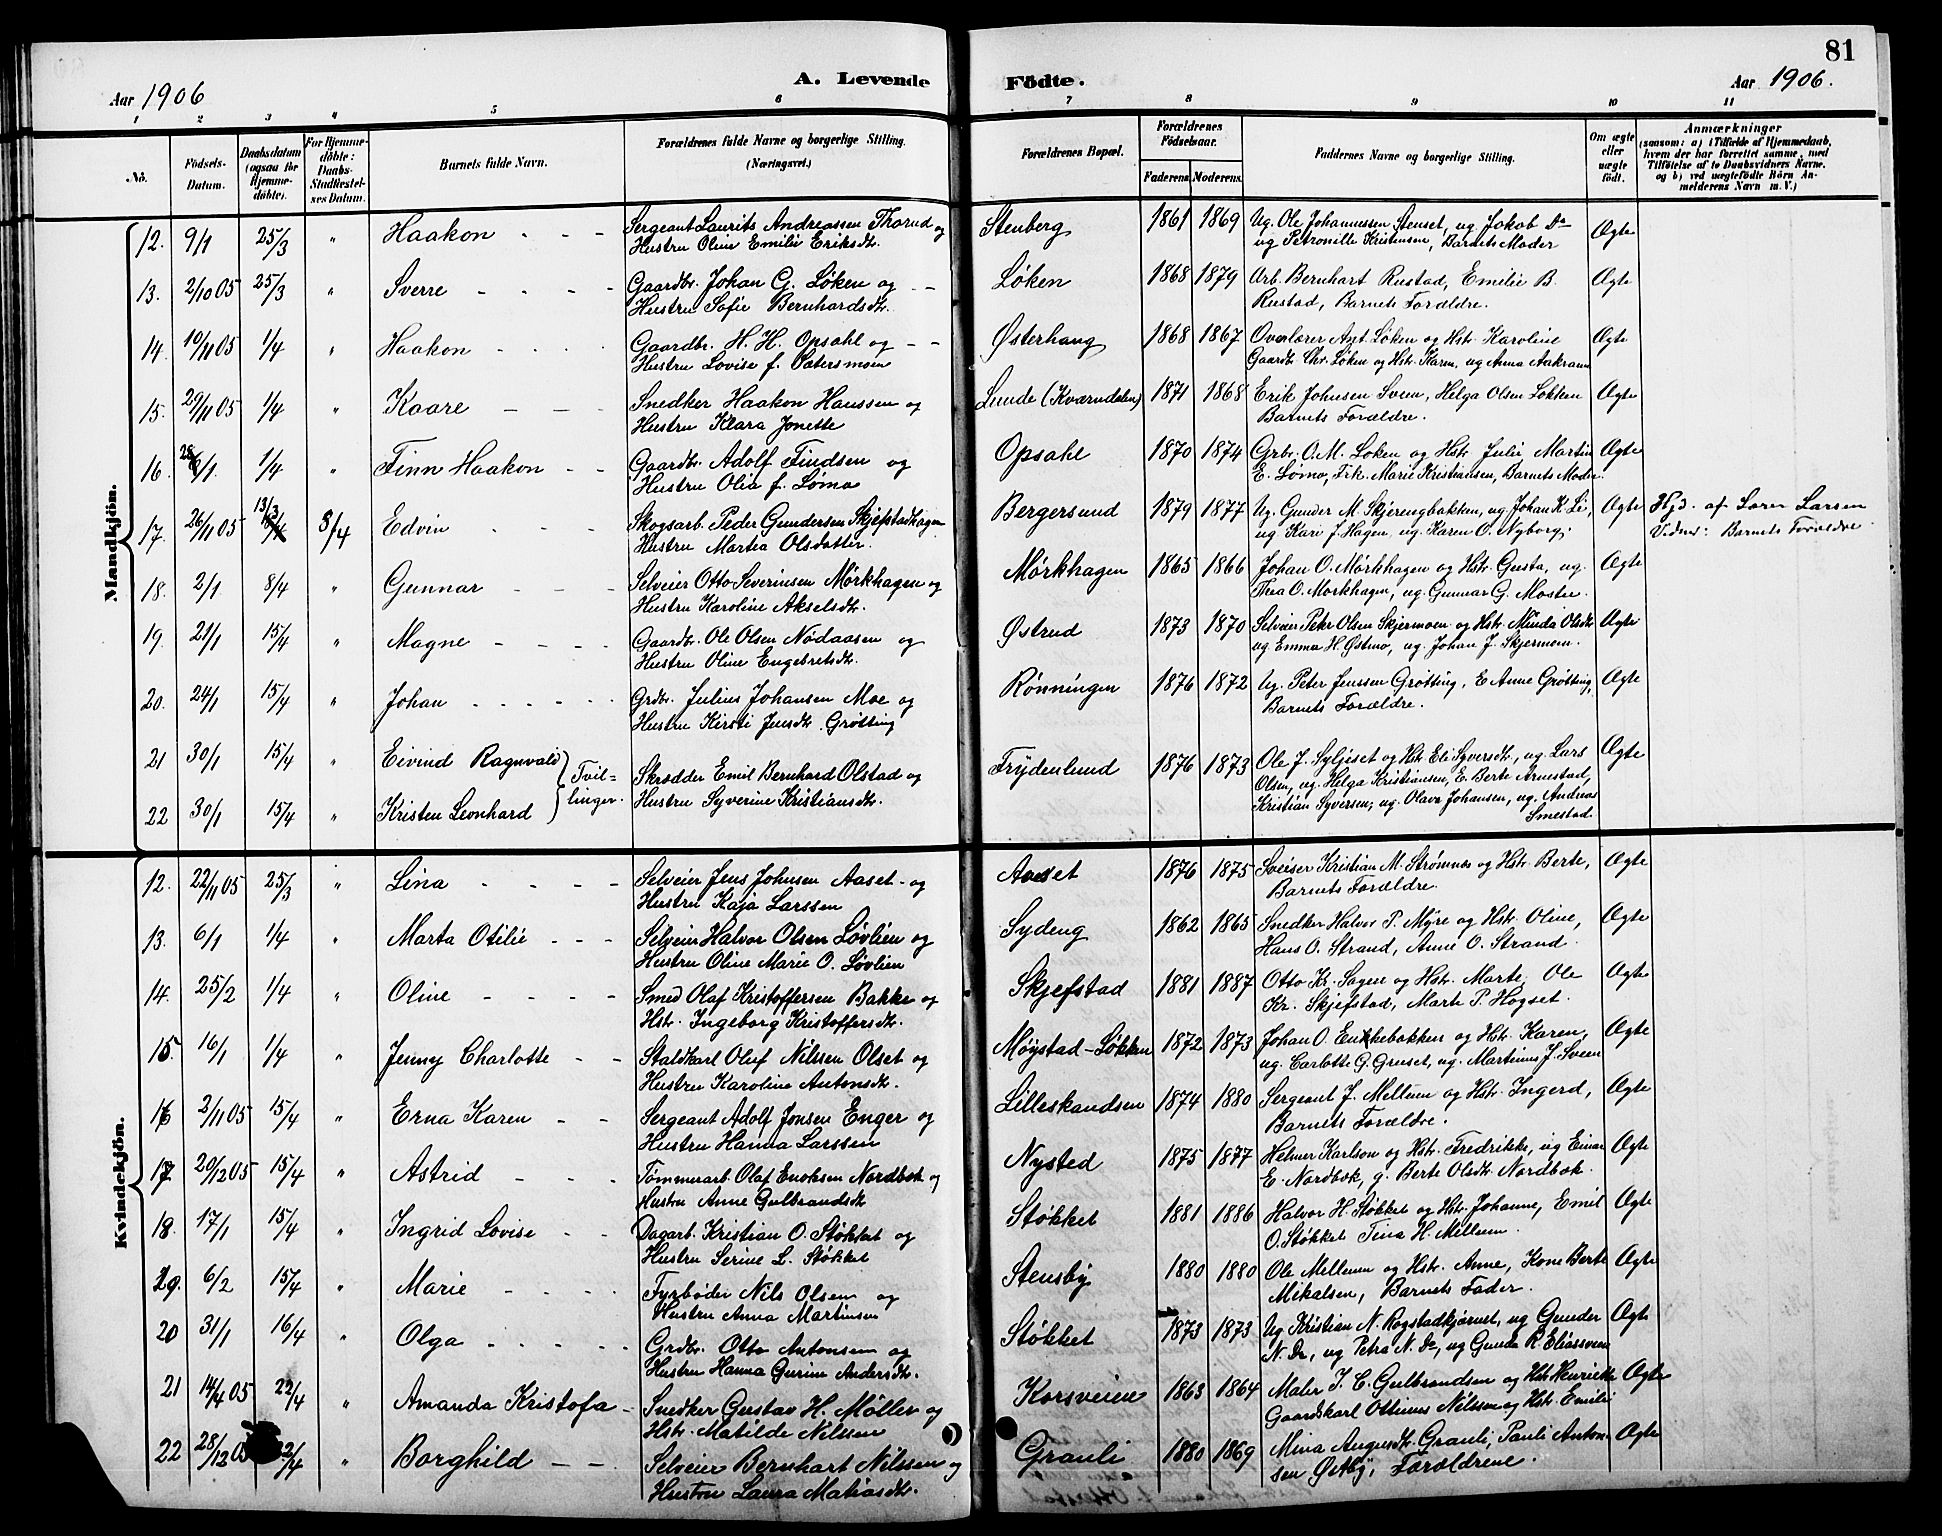 81
Aar 1906
A. Levende
Födte.
Aar 1906.
1 2 3 4 5 6 7 8 9 10 11
No.
Födsels-Datum.
Daabsdatum (ogsaa for Hjemmedöbte).
For Hjemmedöbte: Daabs-Stadfæstelses Datum.
Barnets fulde Navn.
Forældrenes fulde Navne og borgerlige Stilling. (Næringsvei.)
Forældrenes Bopæl.
Forældrenes Födselsaar.
Faderens Moderens
Faddernes Navne og borgerlige Stilling.
Om ægte eller uægte födt.
Anmærkninger
(saasom: a) i Tilfælde af Hjemmedaab, hvem der har forrettet samme, med Tilföielse af to Daabsvidners Navne, og b) ved uægtefödte Börn Anmelderens Navn m. V.)
Mandkjön.
12. 9/1 25/3 " Haakon - - - Sergeant Laurits Andreassen Thorud og Stenberg 1861 1869 Ug. Ole Johannessen Stenset, ug Jakob Do Ægte
Hustru Oline Emilie Eriksdtr. ug Petronille Kristensen, Barnets Moder
13. 2/10 05 25/3 " Sverre - - - - Gaardbr. Johan G. Løken og - - Løken 1868 1879 Arb. Bernhart Rustad, Emilie B. Ægte
Hustru Sofie Bernhardsdtr. Rustad, Barnets Forældre.
14. 19/11 05 1/4 " Haakon - - - - Gaardbr. H. H. Opsahl og - - Østerhaug 1868 1867 Overlærer Ant. Løken og Hstr. Karoline Ægte
Hustru Lovise f. Pætersmoen Gaardbr. Chr. Løken og Hstr. Karen, ug Anna Aakrann
15. 29/11 05 1/4 " Kaare - - - Snedker Haakon Hanssen og Lunde (Kværndalen) 1871 1868 Erik Johnsen Sveen, Helga Olsen Løkken Ægte
Hustru Klara Jonette Barnets Forældre.
16. 1/4 " Finn Haakon - - Gaardbr. Adolf Findsen og Opsahl 1870 1874 Grbr. O. M. Løken og Hstr. Julie, Martin Ægte
Hustru Olia f. Lømo E. Lømo, Frk. Marie Kristiansen, Barnets Moder.
17. 26/11 05 13/3 8/4 Edvin - - Skogsarb. Peder Gundersen Skjefstadhagen Bergersund 1879 1877 Ug. Gunder M. Skjerengbakken, ug. Johan K. Li, Ægte Hjd. af Søren Larsen
Hustru Martea Olsdatter. ug Kari J. Hagen, ug. Karen O. Nyborg; Vidner: Barnets Forældre
18. 2/1 8/4 " Gunnar - - - Selveier Otto Severinsen Mørkhagen og Mørkhagen 1865 1866 Johan O. Mørkhagen og Hstr. Gusta, ug. Ægte
Hustru Karoline Akselsdtr. Thea O. Mørkhagen, ug. Gunnar G. Moster.
19. 21/1 15/4 " Magne - - - - Gaardbr. Ole Olsen Nødaasen og Østrud 1873 1870 Selveier Peter Olsen Skjermoen og Hstr. Minda Olsdtr. Ægte
Hustru Oline Engebretsdtr. ug Emma H. Østmo, ug. Johan J. Skjermoen.
20. 24/1 15/4 " Johan - - - - - Grdbr. Julius Johansen Moe og Rønningen 1876 1872 Ug. Peter Jenssen Grøtting, E. Anne Grøtting, Ægte
Hustru Kirsti Jensdtr. Grøtting Barnets Forældre.
21 30/1 15/4 " Eivind Ragnvald Tvil- Skrædder Emil Bernhard Olstad og Frydenlund 1876 1873 Ole J. Syljeset og Hstr. Eli Syversdtr, ug. Lars Ægte
Olsen, ug. Helga Kristiansen, E. Berte Arnestad,
22 30/1 15/4 " Kristen Leonhard linger. Hustru Syverine Kristiansdtr. Kristian Syversen, ug. Olava Johansen, ug. Andreas
Smestad.
Kvindekjön.
12. 22/11 05 25/3 " Lina - - - - Selveier Jens Johnsen Aaset - og Aaset 1876 1875 Sveiser Kristian M. Strømnes og Hstr. Berte, Ægte
Hustru Kaja Larssen Barnets Forældre.
13. 6/1 1/4 " Marta Otilie - - - Selveier Halvor Olsen Løvlien og Sydeng 1862 1865 Snedker Halvor P. Myre og Hstr. Oline, Ægte
Hustru Oline Marie O. Løvlien Hans O. Strand, Anne O. Strand.
14. 25/2 1/4 " Oline - - - - Smed Olaf Kristoffersen Bakke og Skjefstad 1881 1887 Otto Kr. Sagen og Hstr. Marte, Ole Ægte
Hstr. Ingeborg Kristoffersdtr. Kr. Skjefstad, Marte P. Høgset.
15. 16/1 1/4 " Jenny Charlotte - - Staldkarl Oluf Nilssen Olset og Møystad-Løkken 1872 1873 Johan O. Enkkebakken og Hstr. Karen, Ægte
Hustru Karoline Antonsdtr. ug. Carlotte G. Gruset, ug. Martinus J. Sveen
16 2/11 05 15/4 " Erna Karen - - Sergeant Adolf Jonsen Enger og Lilleskandsen 1874 1880 Sergeant J. Mellum og Hstr. Ingerd, Ægte
Hustru Hanna Larssen Barnets Forældre.
17. 20/12 05 15/4 " Astrid - - - Tømmerarb. Olaf Enoksen Nordbok og Nysted 1875 1877 Helmer Karlson og Hstr. Fredrikke, ug Einar Ægte
Hustru Anne Gulbrandsdtr E. Nordbok, g. Berte Olsdtr. Nordbok.
18. 17/1 15/4 " Ingrid Lovise - - Dagarb. Kristian O. Støkket og Støkket 1881 1886 Halvor H. Støkket og Hstr. Johanne, Emil Ægte
Hustru Serine L. Støkket O. Støkket Tina H. Mellum
19. 6/2 15/4 " Marie - - - - Fyrbøder Nils Olsen og Stensby 1880 1880 Ole Mellum og Hstr. Anne, Kone Berte Ægte
Hustru Anna Martinsen Mikalsen, Barnets Fader.
20 31/1 16/4 " Olga - - - - - Grdbr. Otto Antonsen og Støkket 1873 1873 Ug. Kristian N. Rogstadkjernet, ug Gunder Ægte
Hustru Hanna Gurine Andersdtr. N. Do, ug Petra N. Do, ug Gunda R. Eliassveen
21 14/4 05 22/4 " Amanda Kristofa - Snedker Gustav H. Møller og Korsveien 1863 1864 Maler J. C. Gulbrandsen og Hstr. Henriette Ægte
Hstr. Matilde Nilssen Gaardskarl Ottinus Nilssen og Hstr Emilie
22 28/12 05 " Borghild - - Selveier Bernhart Nilssen og Grauli 1880 1869 Mina Augusdtr. Grauli, Pauli Anton- Ægte
Hustru Laura Matiasdtr. sen Østby, Forældrene.